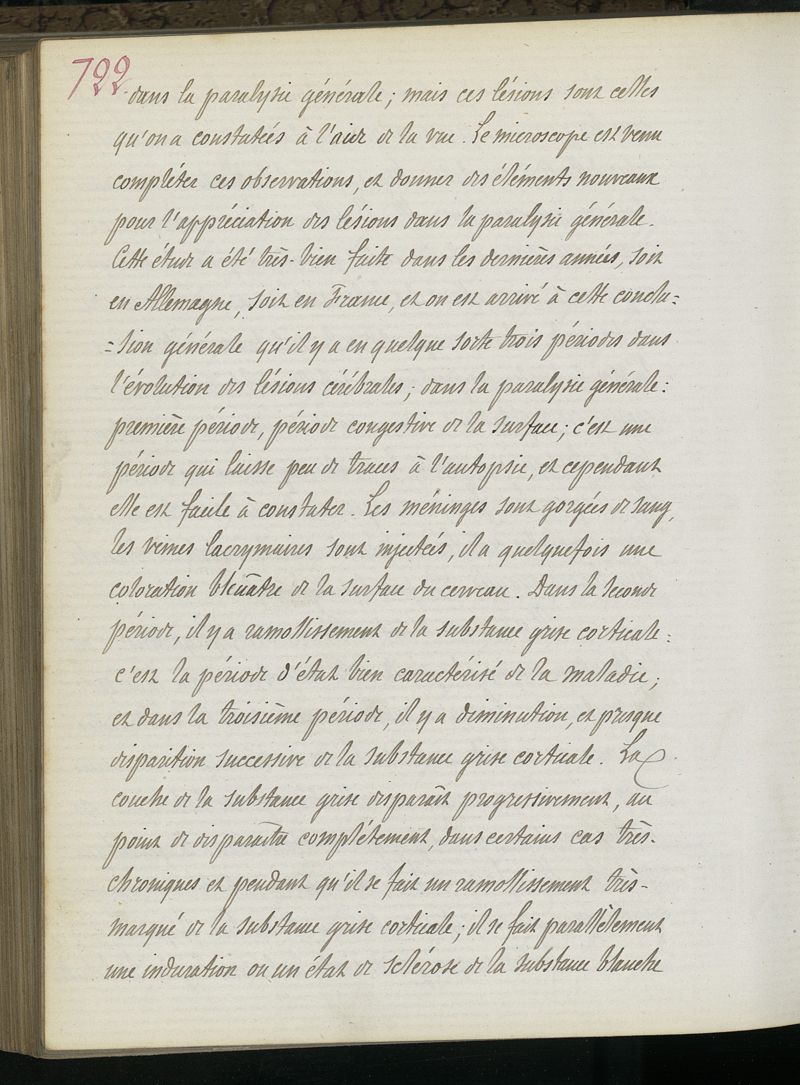 722
dans la paralysie générale; mais ces lésions sont celles
qu'on a constatées à l'aide de la vue. Le microscope est venu
compléter ces observations, et donner des éléments nouveaux
pour l'appréciation des lésions dans la paralysie générale.
Cette étude a été très-bien faite dans les dernières années, soit
en Allemagne, soit en France, et on est arrivé à cette conclu=
=sion générale qu'il y a en quelque sorte trois périodes dans
l'évolution des lésions cérébrales, dans la paralysie générale:
première période, période congestive de la surface; c'est une
période qui laisse peu de traces à l'autopsie, et cependant
elle est facile à constater. Les méninges sont gorgées de sang,
les veines lacrymaires sont injectées, il a quelquefois une
coloration bleuâtre de la surface du cerveau. Dans la seconde
période, il y a ramollissement de la substance grise corticale:
c'est la période d'état bien caractérisé de la maladie;
et dans la troisième période, il y a diminution, et presque
disparition successive de la substance grise corticale. La
couche de la substance grise disparaît progressivement, au
point de disparaître complétement, dans certains cas très-
chroniques et pendant qu'il se fait un ramollissement très-
marqué de la substance grise corticale; il se fait parallèlement
une induration ou un état de sclérose de la substance blanche